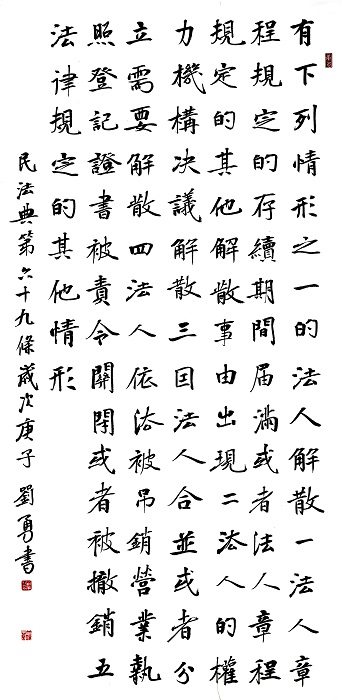 有下列情形之一的法人解散一法人章
程規定的存續期間届滿或者法人章程
規定的其他解散事由出現二法人的權
力機構决議解散三因法人合並或者分
立需要解散四法人依法被吊銷營業執
照登記證書被責令關閉或者被撤銷五
法律規定的其他情形
民法典第六十九條歲次庚子劉勇書